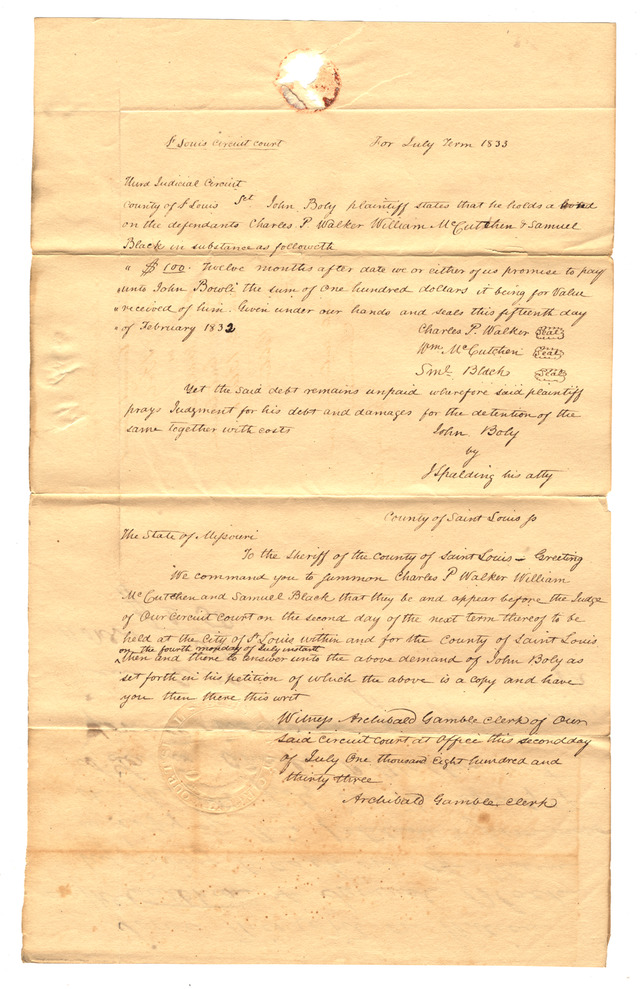 St Louis Circuit court For July Term 1833
Third Judicial Circuit
County of St Louis Sct John Boly plaintiff states that he holds a bond
on the defendants Charles P Walker William McCutchen & Samuel
Black in substance as followeth
" $100. Twelve months after date we or either of us promise to pay
" unto John Bowli the sum of one hundred dollars it being for Value
" received of him. Given under our hands and seals this fifteenth day
" of February 1832 Charles P. Walker Seal
Wm McCutchen Seal
Sml Black Seal
Yet the said debt remains unpaid wherefore said plaintiff
prays Judgment for his debt and damages for the detention of the
same together with costs
John Boly
by
J Spalding his atty
County of Saint Louis ss
The State of Missouri
To the Sheriff of the County of Saint Louis – Greeting
We command you to summon Charles P Walker William
McCutchen and Samuel Black that they be and appear before the Judge
of Our Circuit Court on the second day of the next term thereof to be
held at the City of St Louis within and for the County of Saint Louis
on the fourth monday of July instant
then and there to answer unto the above demand of John Boly as
set forth in his petition of which the above is a copy and have
you then there this writ
Witness Archibald Gamble Clerk of Our
said Circuit Court at Office this second day
of July One thousand Eight hundred and
thirty three
Archibald Gamble Clerk